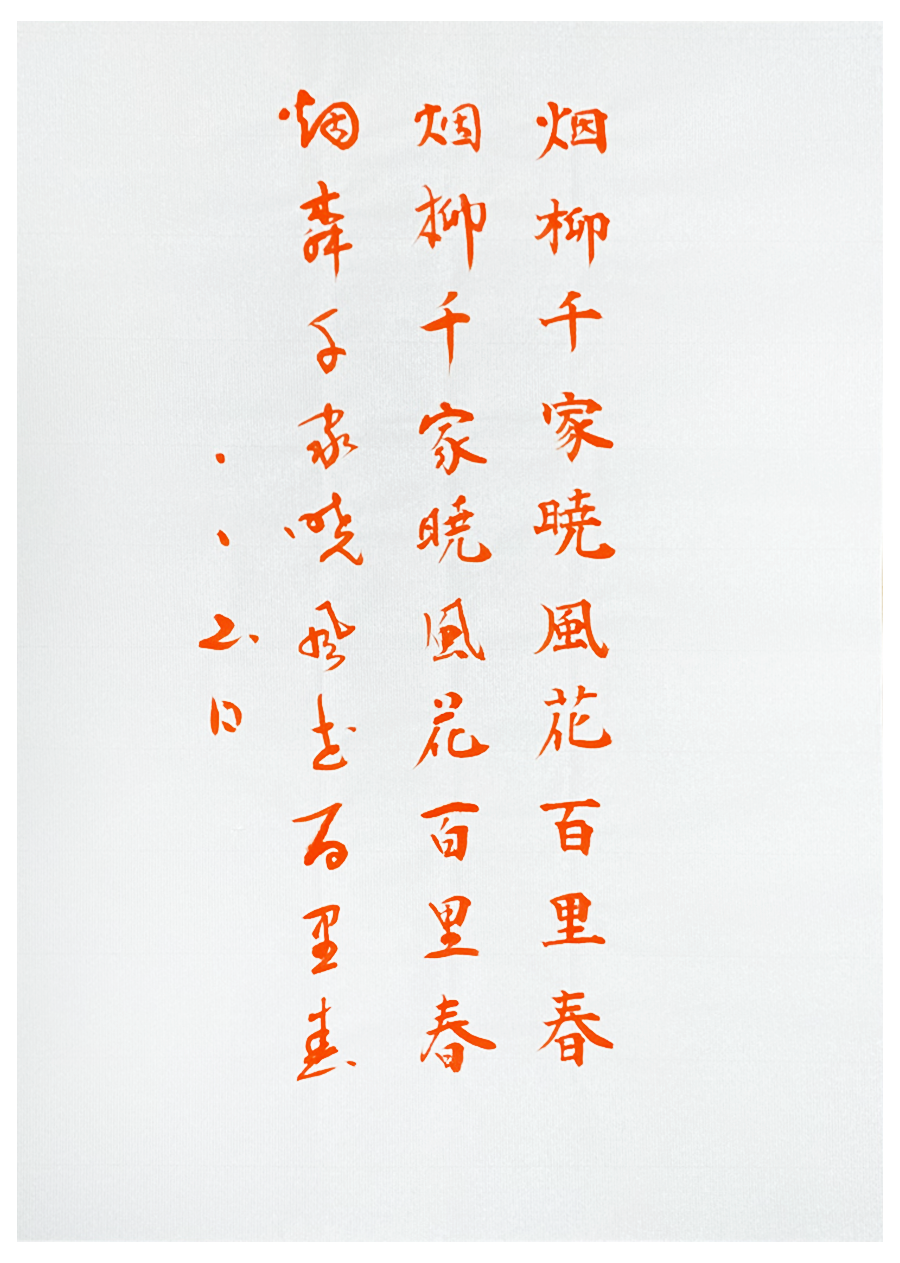 烟柳千家暁風花百里春
烟柳千家暁風花百里春
烟桺千家暁風花百里春
日